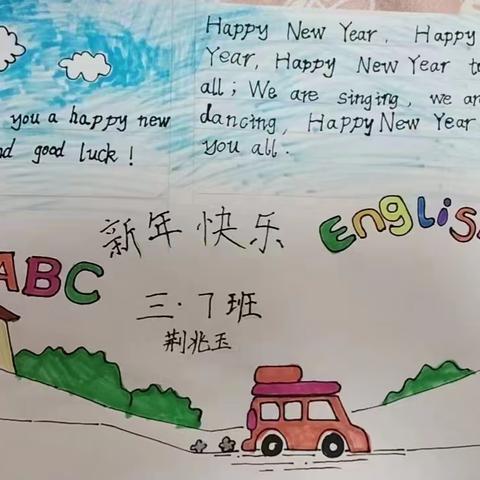 Happy New Year. Happy
Year, Happy New Year to
all; We are singing, we are
dancing, Happy New Year
you all.
you a happy new
good luck!
新年快乐
English
ABC
三.7班
荆兆玉